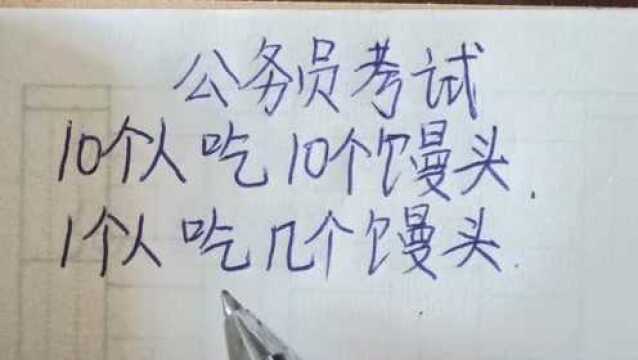 公务员考试
10个人吃10个馒头.
1个人吃几个馒头.